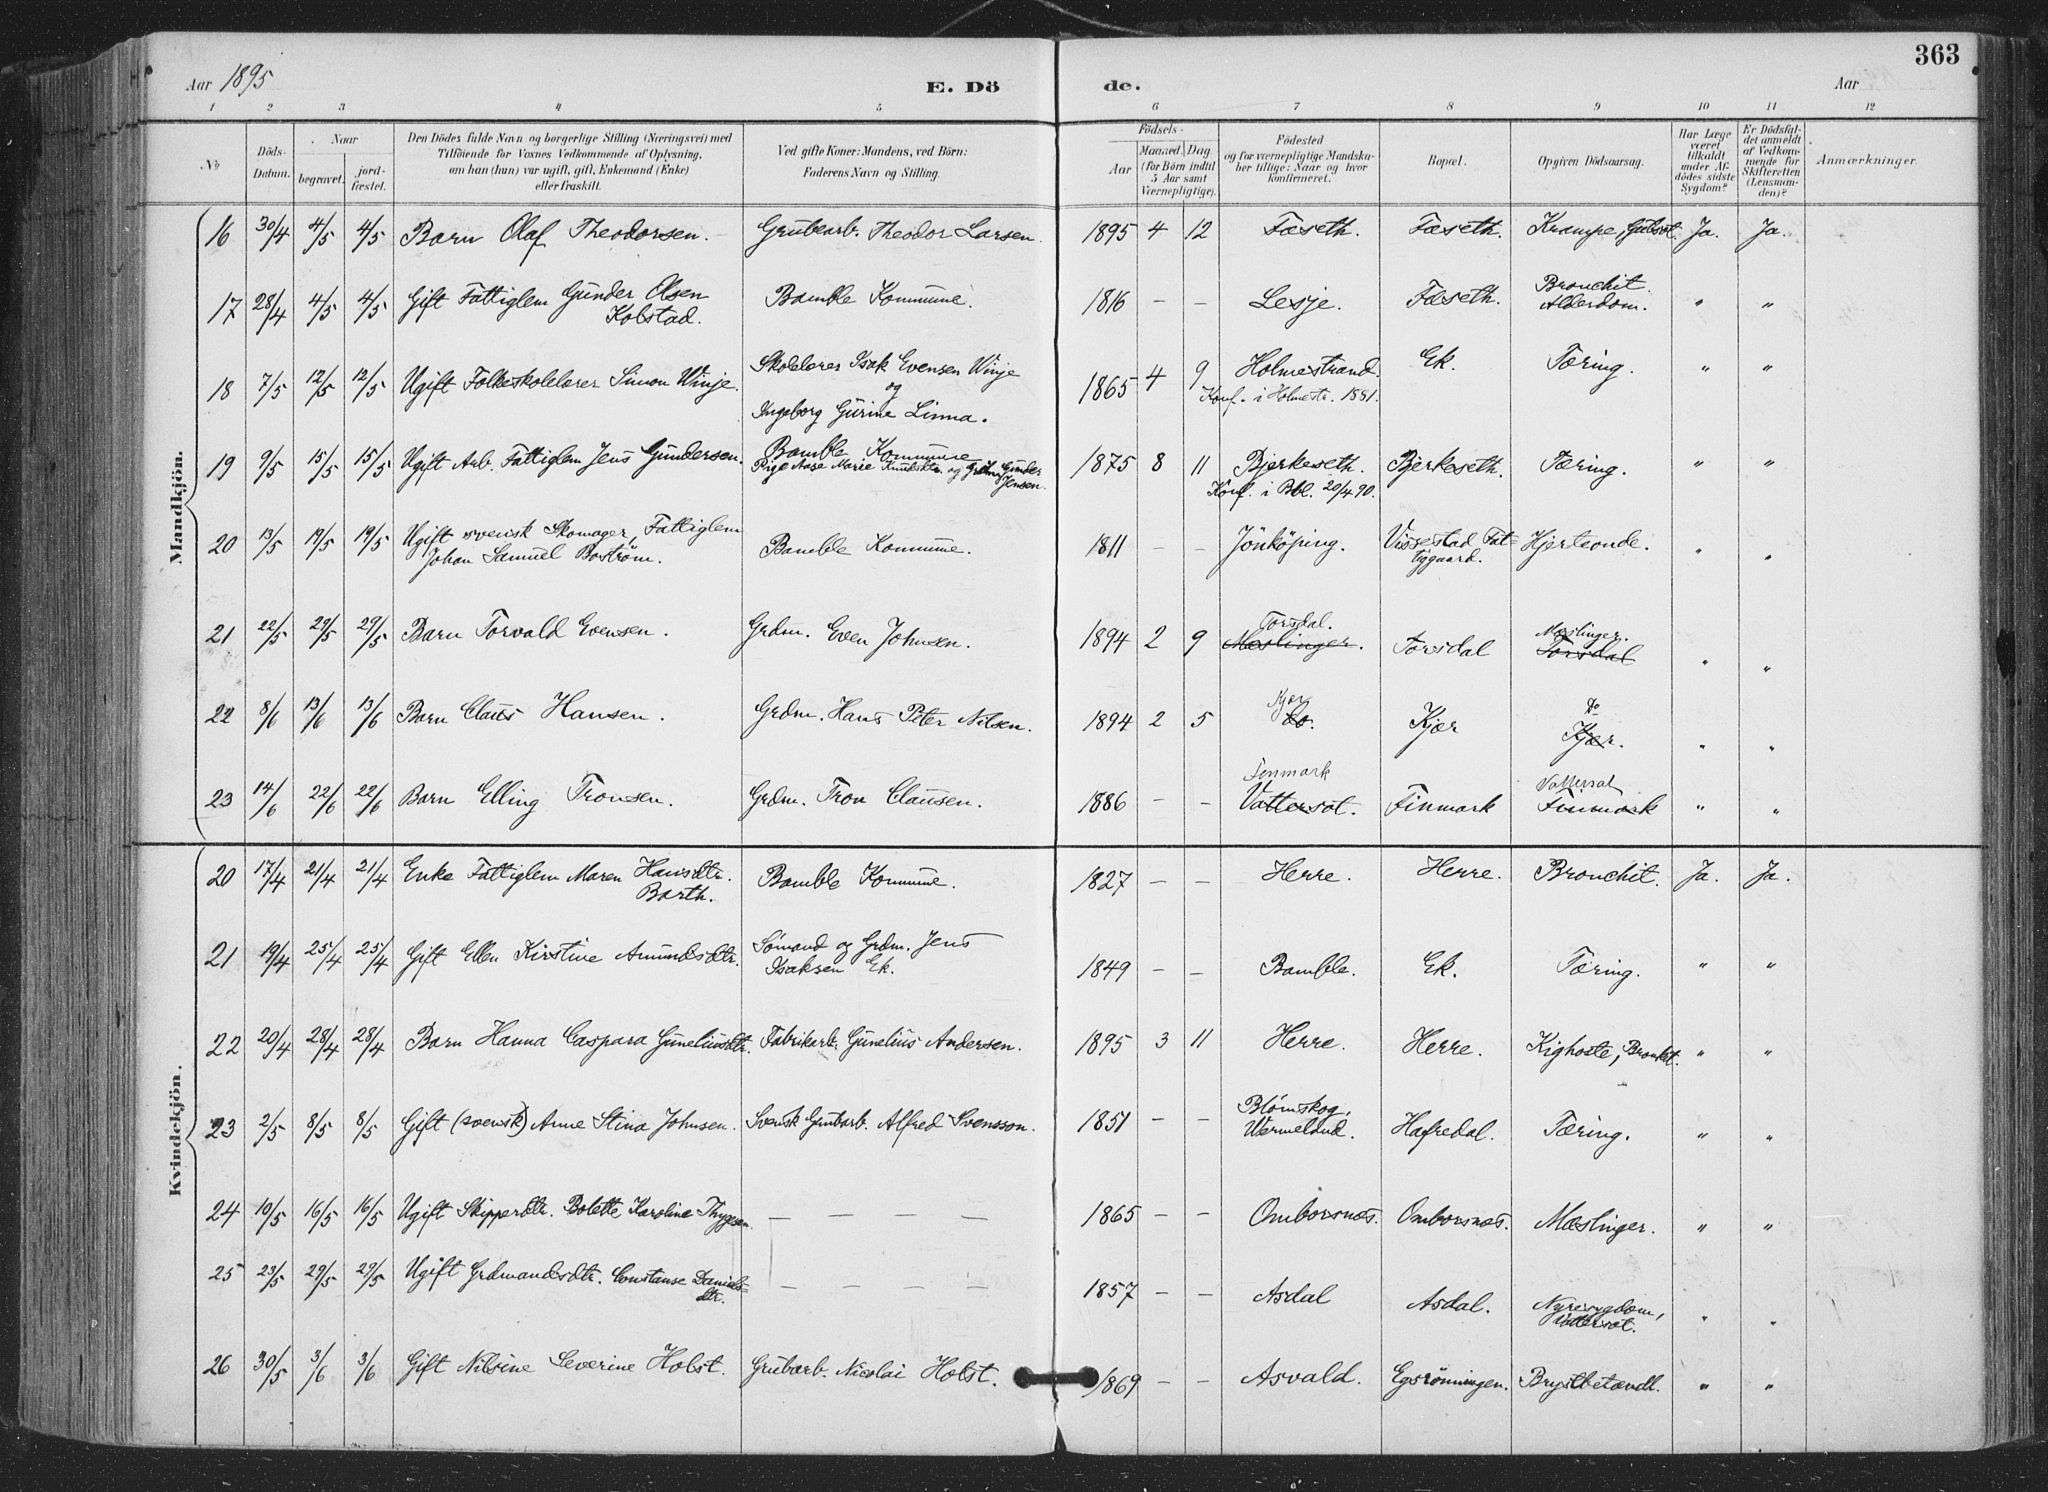 363
Aar 1895 E. Dö de. Aar
1 2 3 4 5 6 7 8 9 10 11 12
No
Döds-Datum.
Naar
begravet.
jord-fæstet.
Den Dödes fulde Navn og borgerlige Stilling (Næringsvei) med
Tilföiende for Voxnes Vedkommende af Oplysning,
om han (hun) var ugift, gift, Enkemand (Enke)
eller fraskilt.
Ved gifte Koner: Mandens, ved Börn:
Faderens Navn og Stilling.
Födsels-
Aar
Maaned. Dag
(for Börn indtil
5 Aar samt
Værnepligtige).
Födested
og for værnepligtige Mandska-
ber tillige: Naar og hvor
konfirmeret.
Bopæl.
Opgiven Dödsaarsag.
Har Læge
været
tilkaldt
under Af-
dödes sidste
Sygdom?
Er Dödsfal-
det anmeldt
af Vedkom-
mende for
Skifteretten
(Lensman-
den)?
Anmærkninger.
Mandkjön.
16 30/4 4/5 4/5 Barn Olaf Theodorsen. Grubearb. Theodor Larsen. 1895 4 12 Fæseth. Fæseth. Krampe, Gulsot. Ja. Ja.
17 28/4 4/5 4/5 Gift Fattiglem Gunder Olsen
Kolstad. Bamble Kommune. 1816 – – Lesje. Fæseth. Bronchit.
Alderdom. " "
18 7/5 12/5 12/5 Ugift Folkeskolelærer Simon Winje. Skolelærer Isak Evensen Winje
og
Ingeborg Gurine Linna. 1865 4 9 Holmestrand.
Konf. i Holmestr. 1881. Ek. Tæring. " "
19 9/5 15/5 15/5 Ugift Arb. Fattiglem Jens Gundersen. Bamble Kommune
Pige Aase Marie Knudsdtr. og Grdm. Gunder
Jensen. 1875 8 11 Bjerkeseth.
Konf. i Bbl. 20/4 90. Bjerkeseth. Tæring. " "
20 13/5 19/5 19/5 Ugift svensk Skomager, Fattiglem
Johan Samuel Boström. Bamble Kommune. 1811 – – Jönköping. Vissestad Fat-
tiggaard. Hjerteonde. " "
21 22/5 29/5 29/5 Barn Torvald Evensen. Grdm. Even Johnsen. 1894 2 9 Torsdal.
Mæslinger. Torsdal Mæslinger.
Torsdal " "
22 8/6 13/6 13/6 Barn Claus Hansen. Grdm. Hans Peter Nilsen. 1894 2 5 Kjær
Do. Kjær Do
Kjær. " "
23 14/6 22/6 22/6 Barn Elling Tronsen. Grdm. Tron Clausen. 1886 – – Finmark
Vattersot. Finmark Vattersot
Finmark " "
Kvindekjön.
20 17/4 21/4 21/4 Enke Fattiglem Maren Hansdtr.
Barth. Bamble Kommune. 1827 – – Herre. Herre. Bronchit. Ja. Ja.
21 19/4 25/4 25/4 Gift Ellen Kirstine Amundsdtr. Sømand og Grdm. Jens
Isaksen Ek. 1849 – – Bamble. Ek. Tæring. " "
22 20/4 28/4 28/4 Barn Hanna Caspara Guneliusdtr. Fabrikarb. Gunelius Andersen. 1895 3 11 Herre. Herre. Kighoste, Bronkit. " "
23 2/5 8/5 8/5 Gift (svensk) Anne Stina Johnsen. Svensk Grubarb. Alfred Svensson. 1851 – – Blömskog,
Wermeland. Hafredal. Tæring. " "
24 10/5 16/5 16/5 Ugift Skipperdtr. Bolette Karoline Thygesen – – – – 1865 – – Omborsnæs. Omborsnæs. Mæslinger. " "
25 23/5 29/5 29/5 Ugift Grdmandsdtr. Constanse Daniels-
dtr. – – – – 1857 – – Asdal Asdal. Nyresygdom,
Vattersot. " "
26 30/5 3/6 3/6 Gift Nilsine Severine Holst. Grubarb. Nicolai Holst. 1869 – – Asvald. Egsrönningen. Brystbetændl. " "